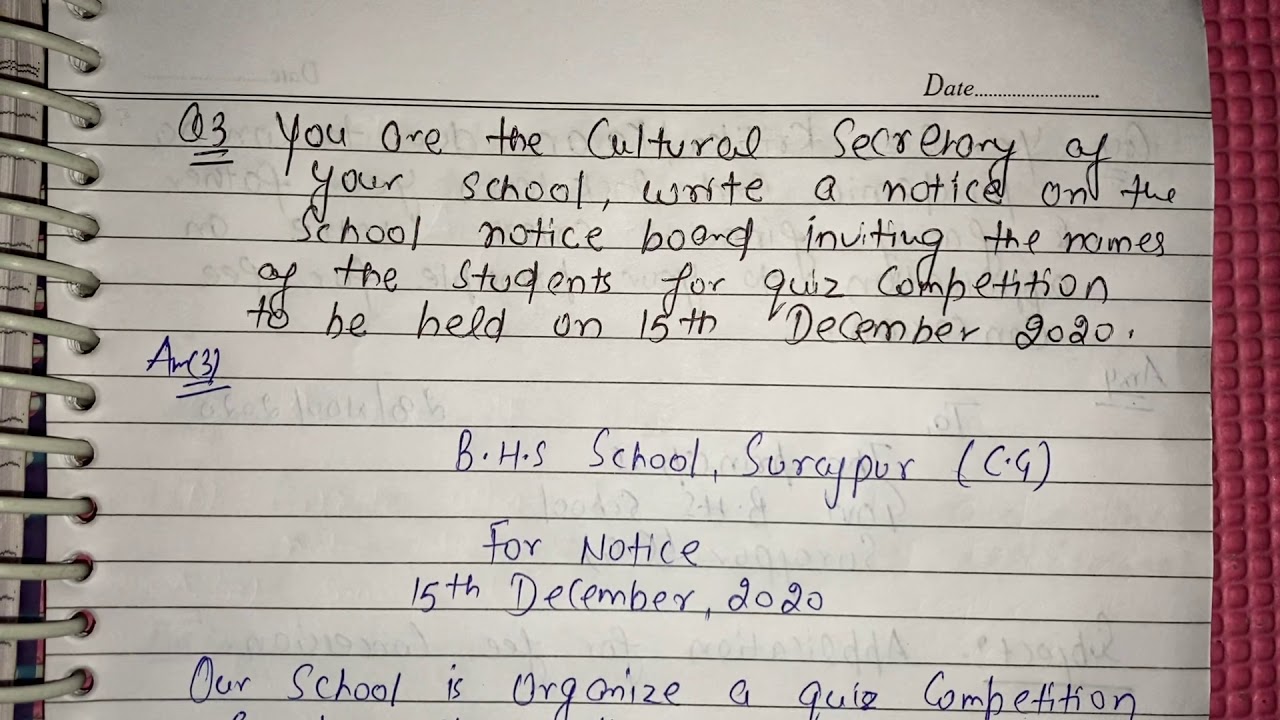 Date............................
Q3 You are the Cultural Secretary of
your school, write a notice on the
School notice board inviting the names
of the students for quiz Competition
to be held on 15th December 2020.
Ans(3)
B.H.S School, Surajpur (C.G)
For Notice
15th December, 2020
Our School is Organize a quiz Competition